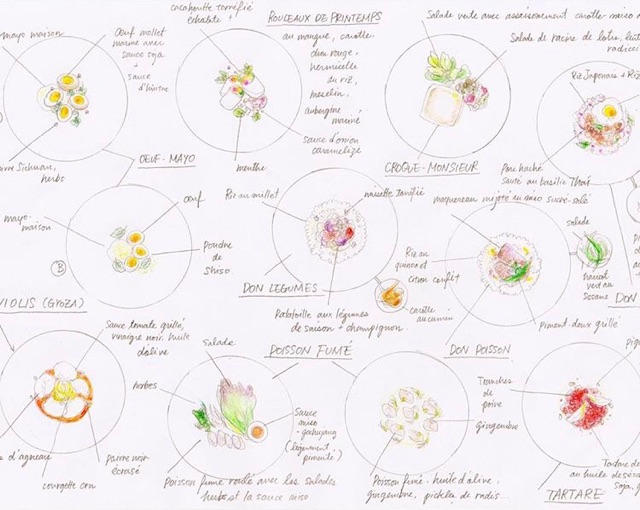 mayo maison
Oeuf mollet
mariné avec
sauce soja
+
sauce
d'huître
herbs
OEUF-MAYO
cacahouète torréfié
ROULEAUX DE PRINTEMPS
au mangue, carotte
chou rouge,
vermicelle
du riz,
aubergine
mariné
sauce d'onion
caramelizé
menthe
Salade verte avec assaisonement carotte-miso
Salade de racine de lotus,
CROQUE-MONSIEUR
Riz Japonais + Riz
Porc haché
sauté au basilic Thaï
mayo-
maison
Oeuf
Poudre
de
shiso
B
Riz au millet
noisette torréfié
DON LEGUMES
Ratatouille aux légumes
de saison + champignon.
carotte
au cumin
maquereau mijoté au miso sucré-salé
Riz au
quinoa et
citron confit
salade
haricot
vert au
sésame
Piment-doux grillé
DON POISSON
DON
VIOLIS (GYOZA)
Sauce tomate grillé,
vinaigre noir. huile
d'olive
d'agneau
courgette cru
Poivre noir
écrasé
POISSON FUMÉ
Salade
herbes
Sauce
miso
-gochujang
(légèrement
pimenté)
Poisson fumé roulé avec les salades
herbs et la sauce miso
gingembre
Poisson fumé - huile d'olive,
gingembre, pickles de radis...
Tranches
de
poire
Tartare de
au huile de
soja,
TARTARE